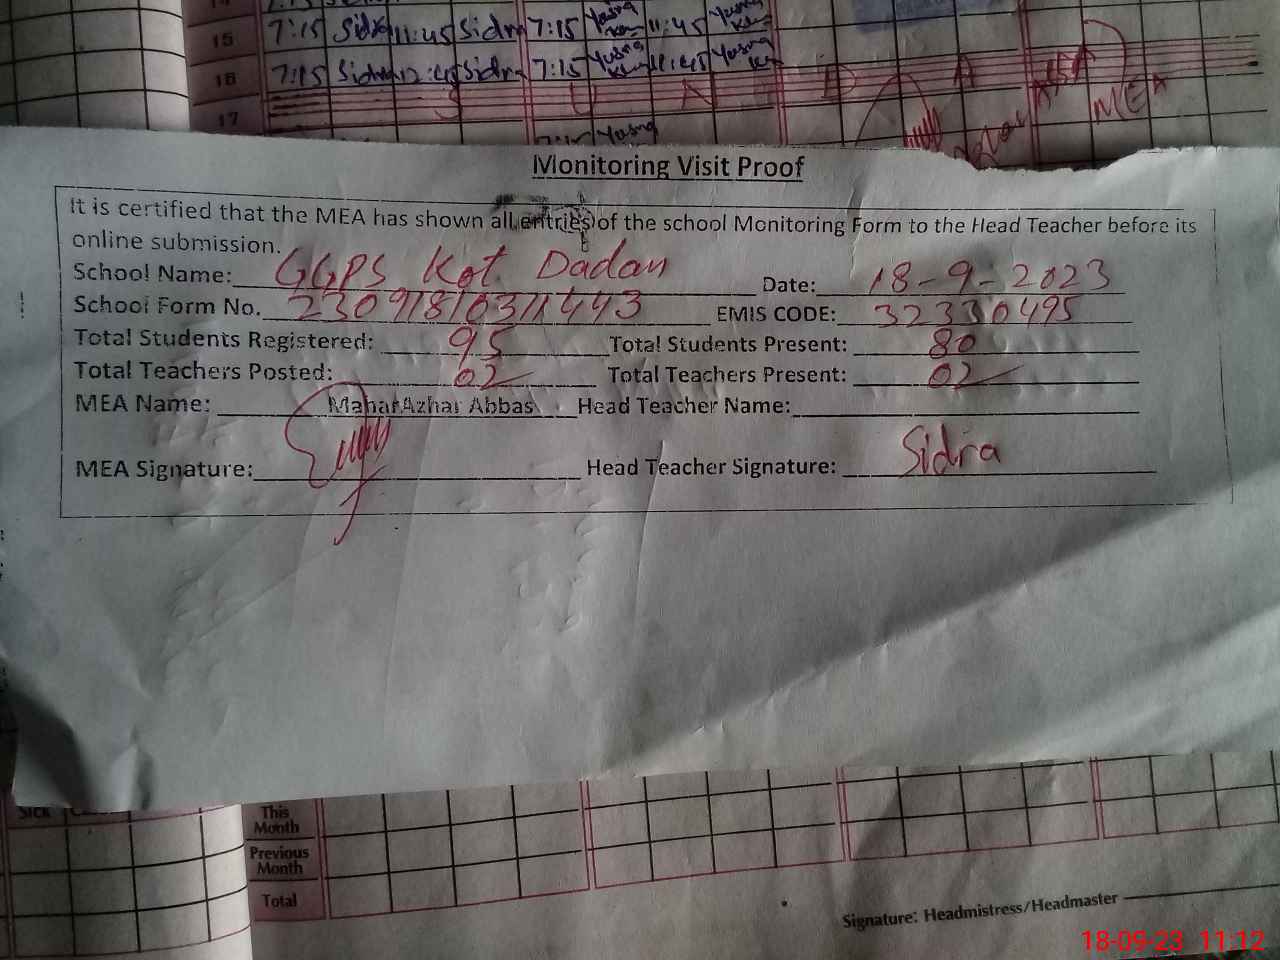 15 7:15 Sidra 11:45 Sidra 7:15 Yusra 11:45 Yusra
16 7:15 Sidra 12:45 Sidra 7:15 Yusra 11:45 Yusra
17 S U N D A
7:15 Yusra
MEA
Monitoring Visit Proof
It is certified that the MEA has shown all entries of the school Monitoring Form to the Head Teacher before its
online submission.
School Name: GGPS Kot Dadan Date: 18-9-2023
School Form No. 23091810311443 EMIS CODE: 32330495
Total Students Registered: 95 Total Students Present: 80
Total Teachers Posted: 02 Total Teachers Present: 02
MEA Name: MaharAzhar Abbas Head Teacher Name:
MEA Signature: Head Teacher Signature: Sidra
Sick
This Month
Previous Month
Total
Signature: Headmistress/Headmaster
18-09-23 11:12